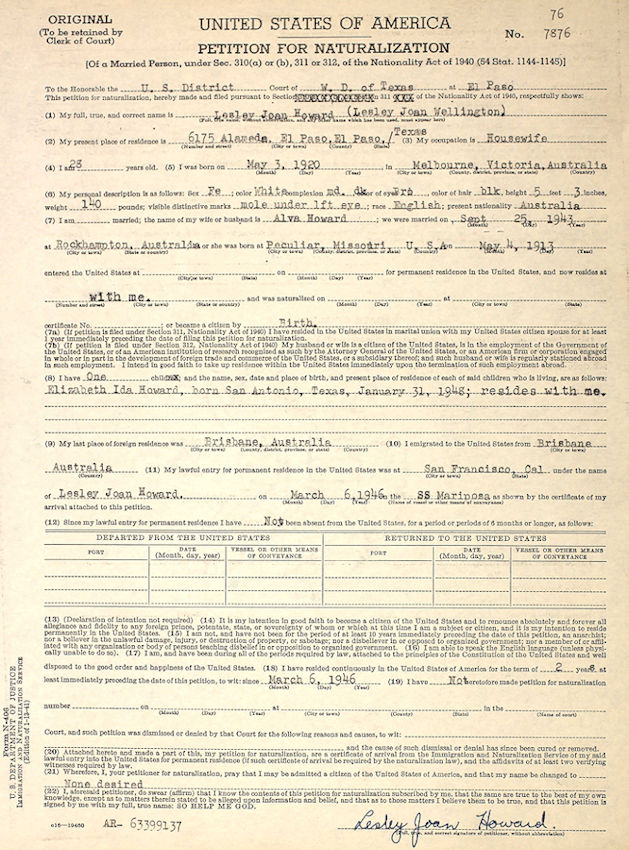 ORIGINAL
(To be retained by
Clerk of Court)
UNITED STATES OF AMERICA
PETITION FOR NATURALIZATION
76
No. 7876
[Of a Married Person, under Sec. 310(a) or (b), 311 or 312, of the Nationality Act of 1940 (54 Stat. 1144-1145)]
To the Honorable the U. S. District Court of W. D. of Texas at El Paso
This petition for naturalization, hereby made and filed pursuant to Section 311 of the Nationality Act of 1940, respectfully shows:
(1) My full, true, and correct name is Lesley Joan Howard (Lesley Joan Wellington)
(2) My present place of residence is 6175 Alameda, El Paso, El Paso, /Texas (3) My occupation is Housewife
(Number and street) (City or town) (County) (State)
(4) I am 28 years old. (5) I was born on May 3, 1920 in Melbourne, Victoria, Australia
(Month) (Day) (Year) (City or town) (County, district, province, or state) (Country)
(6) My personal description is as follows: Sex Fe; color White complexion md. dk color of eyes Brn color of hair blk, height 5 feet 3 inches,
weight 140 pounds; visible distinctive marks mole under lft eye; race English; present nationality Australia
(7) I am married; the name of my wife or husband is Alva Howard; we were married on Sept 25, 1943
(Month) (Day) (Year)
at Rockhampton, Australia or she was born at Peculiar, Missouri, U. S.A on May 4, 1913
(City or town) (State or country) (City or town) (County, district, province, or state) (Country) (Month) (Day) (Year)
entered the United States at on for permanent residence in the United States, and now resides at
(City or town) (State) (Month) (Day) (Year)
with me. and was naturalized on at
(Number and street) (City or town) (State or country) (Month) (Day) (Year) (City or town) (State)
certificate No. ; or became a citizen by Birth.
(7a) (If petition is filed under Section 311, Nationality Act of 1940) I have resided in the United States in marital union with my United States citizen spouse for at least
1 year immediately preceding the date of filing this petition for naturalization.
(7b) (If petition is filed under Section 312, Nationality Act of 1940) My husband or wife is a citizen of the United States, is in the employment of the Government of
the United States, or of an American institution of research recognized as such by the Attorney General of the United States, or an American firm or corporation engaged
in whole or in part in the development of foreign trade and commerce of the United States, or a subsidiary thereof; and such husband or wife is regularly stationed abroad
in such employment. I intend in good faith to take up residence within the United States immediately upon the termination of such employment abroad.
(8) I have One child and the name, sex, date and place of birth, and present place of residence of each of said children who is living, are as follows:
Elizabeth Ida Howard, born San Antonio, Texas, January 31, 1948; resides with me.
(9) My last place of foreign residence was Brisbane, Australia (10) I emigrated to the United States from Brisbane
(City or town) (County, district, province, or state) (Country) (City or town)
Australia (11) My lawful entry for permanent residence in the United States was at San Francisco, Cal under the name
(Country) (City or town) (State)
of Lesley Joan Howard. on March 6, 1946 on the SS Mariposa as shown by the certificate of my
(Month) (Day) (Year) (Name of vessel or other means of conveyance)
arrival attached to this petition.
(12) Since my lawful entry for permanent residence I have Not been absent from the United States, for a period or periods of 6 months or longer, as follows:
DEPARTED FROM THE UNITED STATES RETURNED TO THE UNITED STATES
PORT DATE (Month, day, year) VESSEL OR OTHER MEANS OF CONVEYANCE PORT DATE (Month, day, year) VESSEL OR OTHER MEANS OF CONVEYANCE
(13) (Declaration of intention not required) (14) It is my intention in good faith to become a citizen of the United States and to renounce absolutely and forever all
allegiance and fidelity to any foreign prince, potentate, state, or sovereignty of whom or which at this time I am a subject or citizen, and it is my intention to reside
permanently in the United States. (15) I am not, and have not been for the period of at least 10 years immediately preceding the date of this petition, an anarchist;
nor a believer in the unlawful damage, injury, or destruction of property, or sabotage; nor a disbeliever in or opposed to organized government; nor a member of or affil-
iated with any organization or body of persons teaching disbelief in or opposition to organized government. (16) I am able to speak the English language (unless phys-
ically unable to do so). (17) I am, and have been during all of the periods required by law, attached to the principles of the Constitution of the United States and well
disposed to the good order and happiness of the United States. (18) I have resided continuously in the United States of America for the term of 2 years at
least immediately preceding the date of this petition, to wit: since March 6, 1946 (19) I have Not heretofore made petition for naturalization
(Month) (Day) (Year)
number on at in the
(Month) (Day) (Year) (City or town) (County) (State) (Name of court)
Court, and such petition was dismissed or denied by that Court for the following reasons and causes, to wit:
and the cause of such dismissal or denial has since been cured or removed.
(20) Attached hereto and made a part of this, my petition for naturalization, are a certificate of arrival from the Immigration and Naturalization Service of my said
lawful entry into the United States for permanent residence (if such certificate of arrival be required by the naturalization law), and the affidavits of at least two verifying
witnesses required by law.
(21) Wherefore, I, your petitioner for naturalization, pray that I may be admitted a citizen of the United States of America, and that my name be changed to
None desired
(22) I, aforesaid petitioner, do swear (affirm) that I know the contents of this petition for naturalization subscribed by me, that the same are true to the best of my own
knowledge, except as to matters therein stated to be alleged upon information and belief, and that as to those matters I believe them to be true, and that this petition is
signed by me with my full, true name: SO HELP ME GOD.
AR- 63399137
Lesley Joan Howard.
(Full, true, and correct signature of petitioner, without abbreviation)
Form N-406
U. S. DEPARTMENT OF JUSTICE
IMMIGRATION AND NATURALIZATION SERVICE
(Edition of 1-13-41)